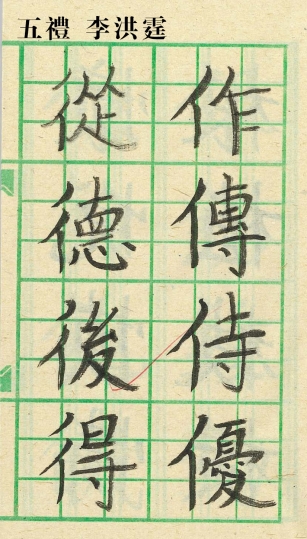 五禮 李洪霆
作傳侍優
從德後得